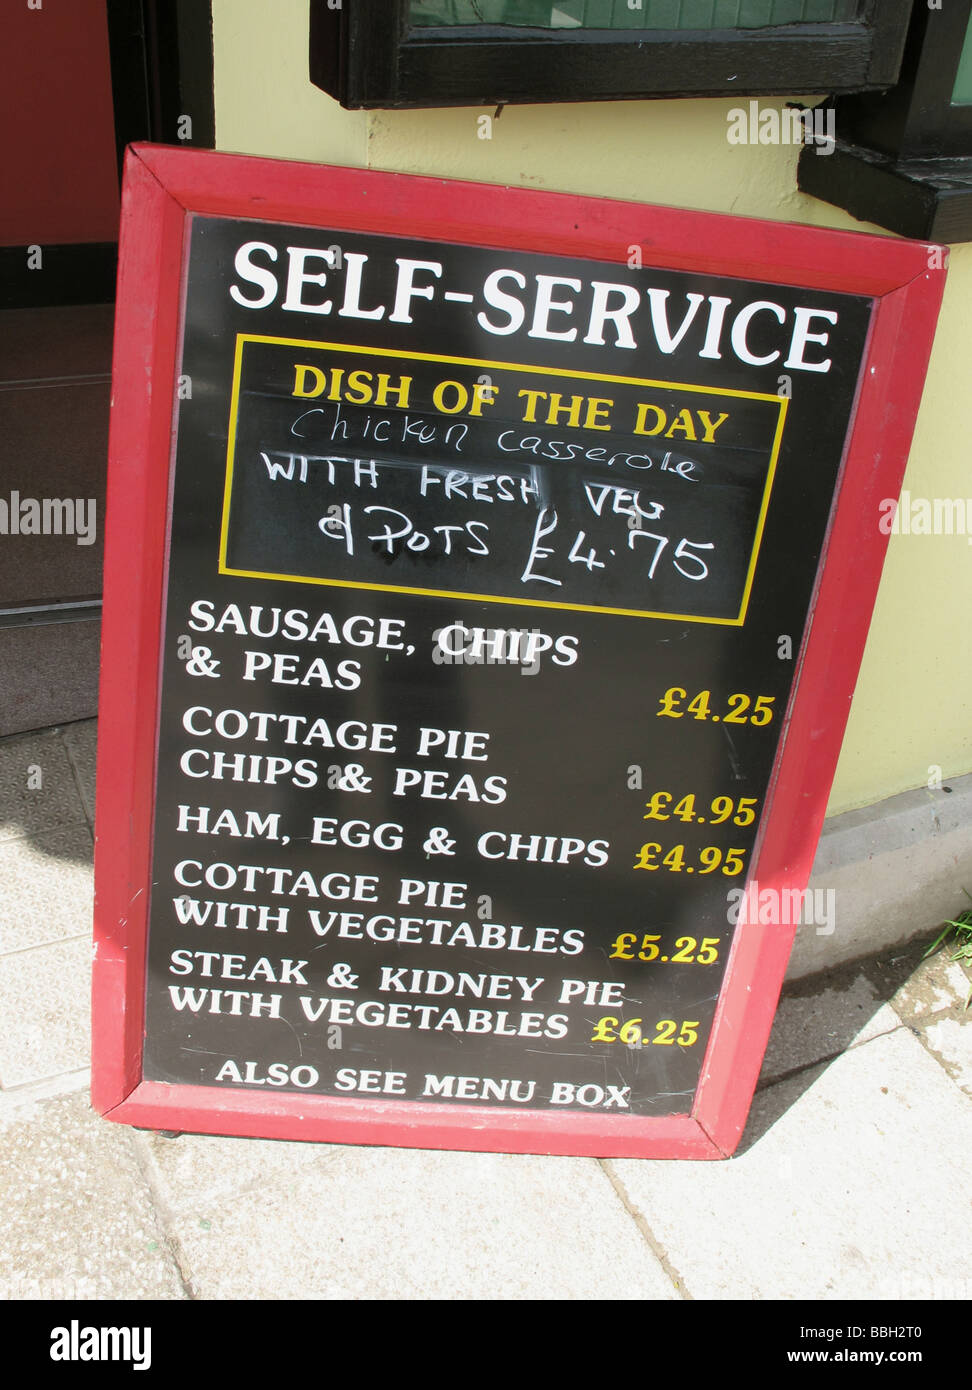 SELF-SERVICE
DISH OF THE DAY
Chicken casserole
WITH FRESH VEG
& POTS £4.75
SAUSAGE, CHIPS
& PEAS £4.25
COTTAGE PIE
CHIPS & PEAS £4.95
HAM, EGG & CHIPS £4.95
COTTAGE PIE
WITH VEGETABLES £5.25
STEAK & KIDNEY PIE
WITH VEGETABLES £6.25
ALSO SEE MENU BOX
alamy stock photo
BBH2T0
www.alamy.com